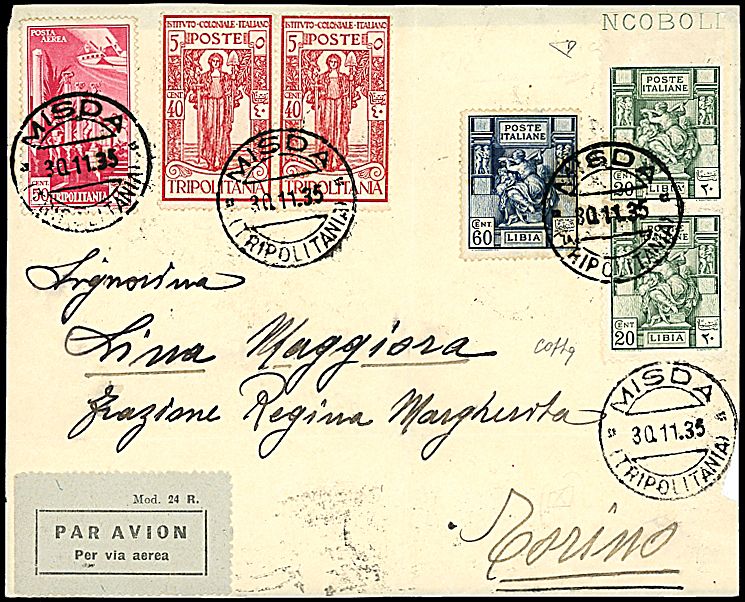 NCOBOLL
POSTA
AEREA
CENT
50
TRIPOLITANIA
ISTITVTO-COLONIALE-ITALIANO
5 POSTE ٥
CENT
40 ٤٠
TRIPOLITANIA
ISTITVTO-COLONIALE-ITALIANO
5 POSTE ٥
CENT
40 ٤٠
TRIPOLITANIA
POSTE
ITALIANE
CENT
60
LIBIA
POSTE
ITALIANE
20
LIBIA
٢٠
CENT
20
LIBIA
٢٠
MISDA
30.11.35
(TRIPOLITANIA)
MISDA
30.11.35
(TRIPOLITANIA)
MISDA
30.11.35
(TRIPOLITANIA)
MISDA
30.11.35
(TRIPOLITANIA)
Signorina
Lina Maggiora
Frazione Regina Margherita
Torino
Mod. 24 R.
PAR AVION
Per via aerea